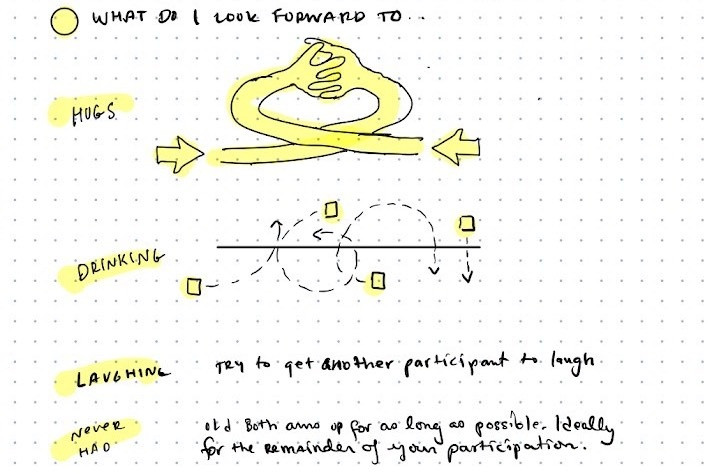 WHAT DO I LOOK FORWARD TO...
HUGS
DRINKING
LAUGHING
TRY to get another participant to laugh
NEVER
HAD
Both arms up for as long as possible. Ideally
for the remainder of your participation.